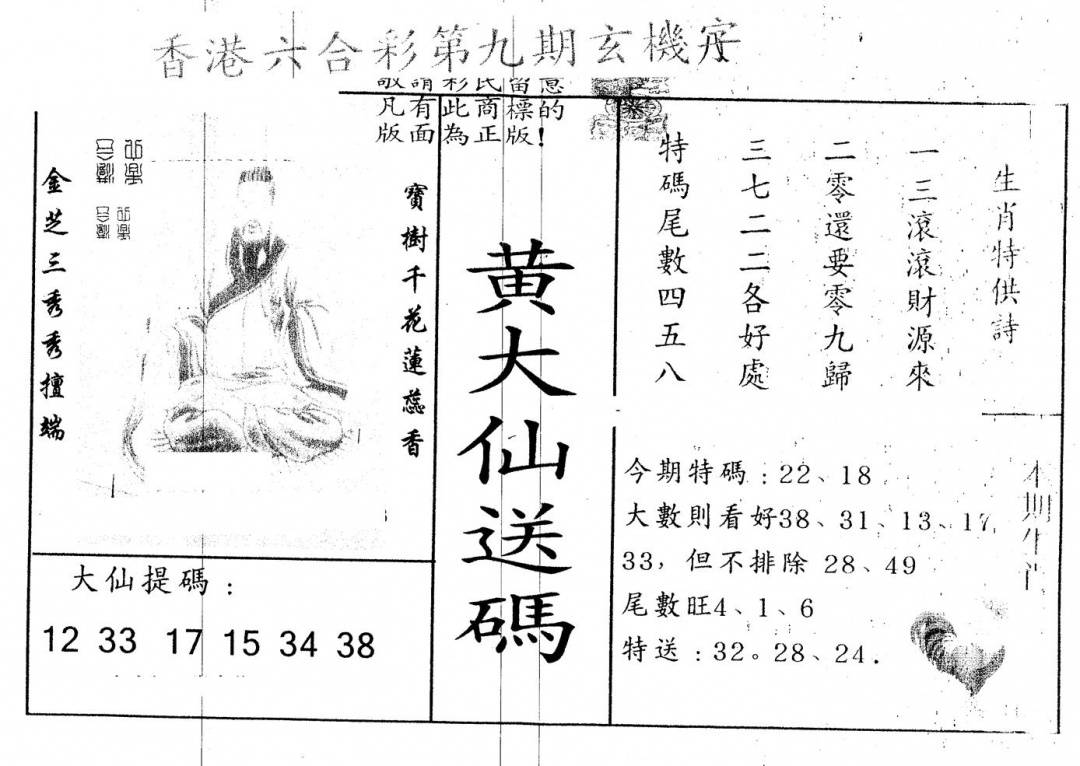 香港六合彩第九期玄機
敬請彩民留意
凡有此商標的
版面為正版!
寶樹千花蓮蕊香
金芝三秀秀擅端
大仙提碼：
12 33 17 15 34 38
黄大仙送碼
生肖特供詩
一三滾滾財源來
二零還要零九歸
三七二二各好處
特碼尾數四五八
本期生肖
今期特碼：22、18
大數則看好38、31、13、17
33，但不排除 28、49
尾數旺4、1、6
特送：32。28、24.